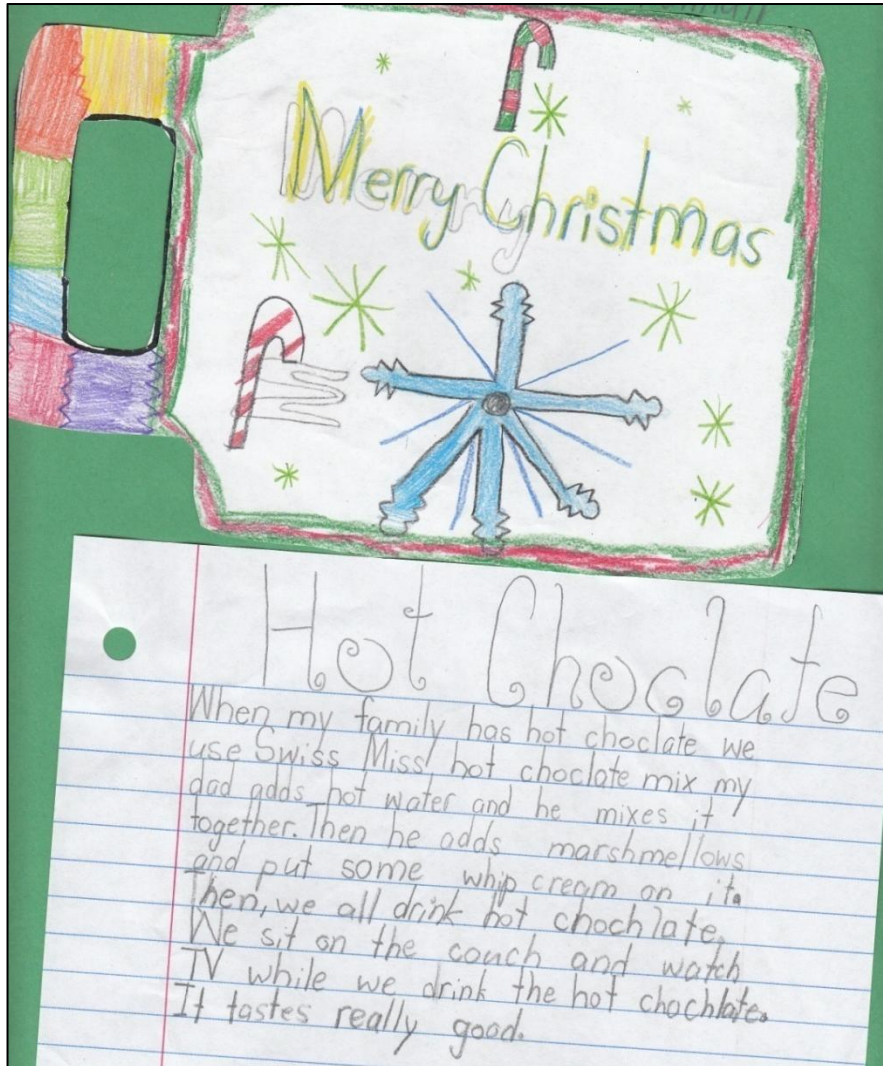 Merry Christmas
Hot Choclate
When my family has hot choclate we
use Swiss Miss hot choclate mix my
dad adds hot water and he mixes it
together. Then he adds marshmellows
and put some whip cream on it.
Then, we all drink hot chochlate.
We sit on the couch and watch
TV while we drink the hot chochlate.
It tastes really good.